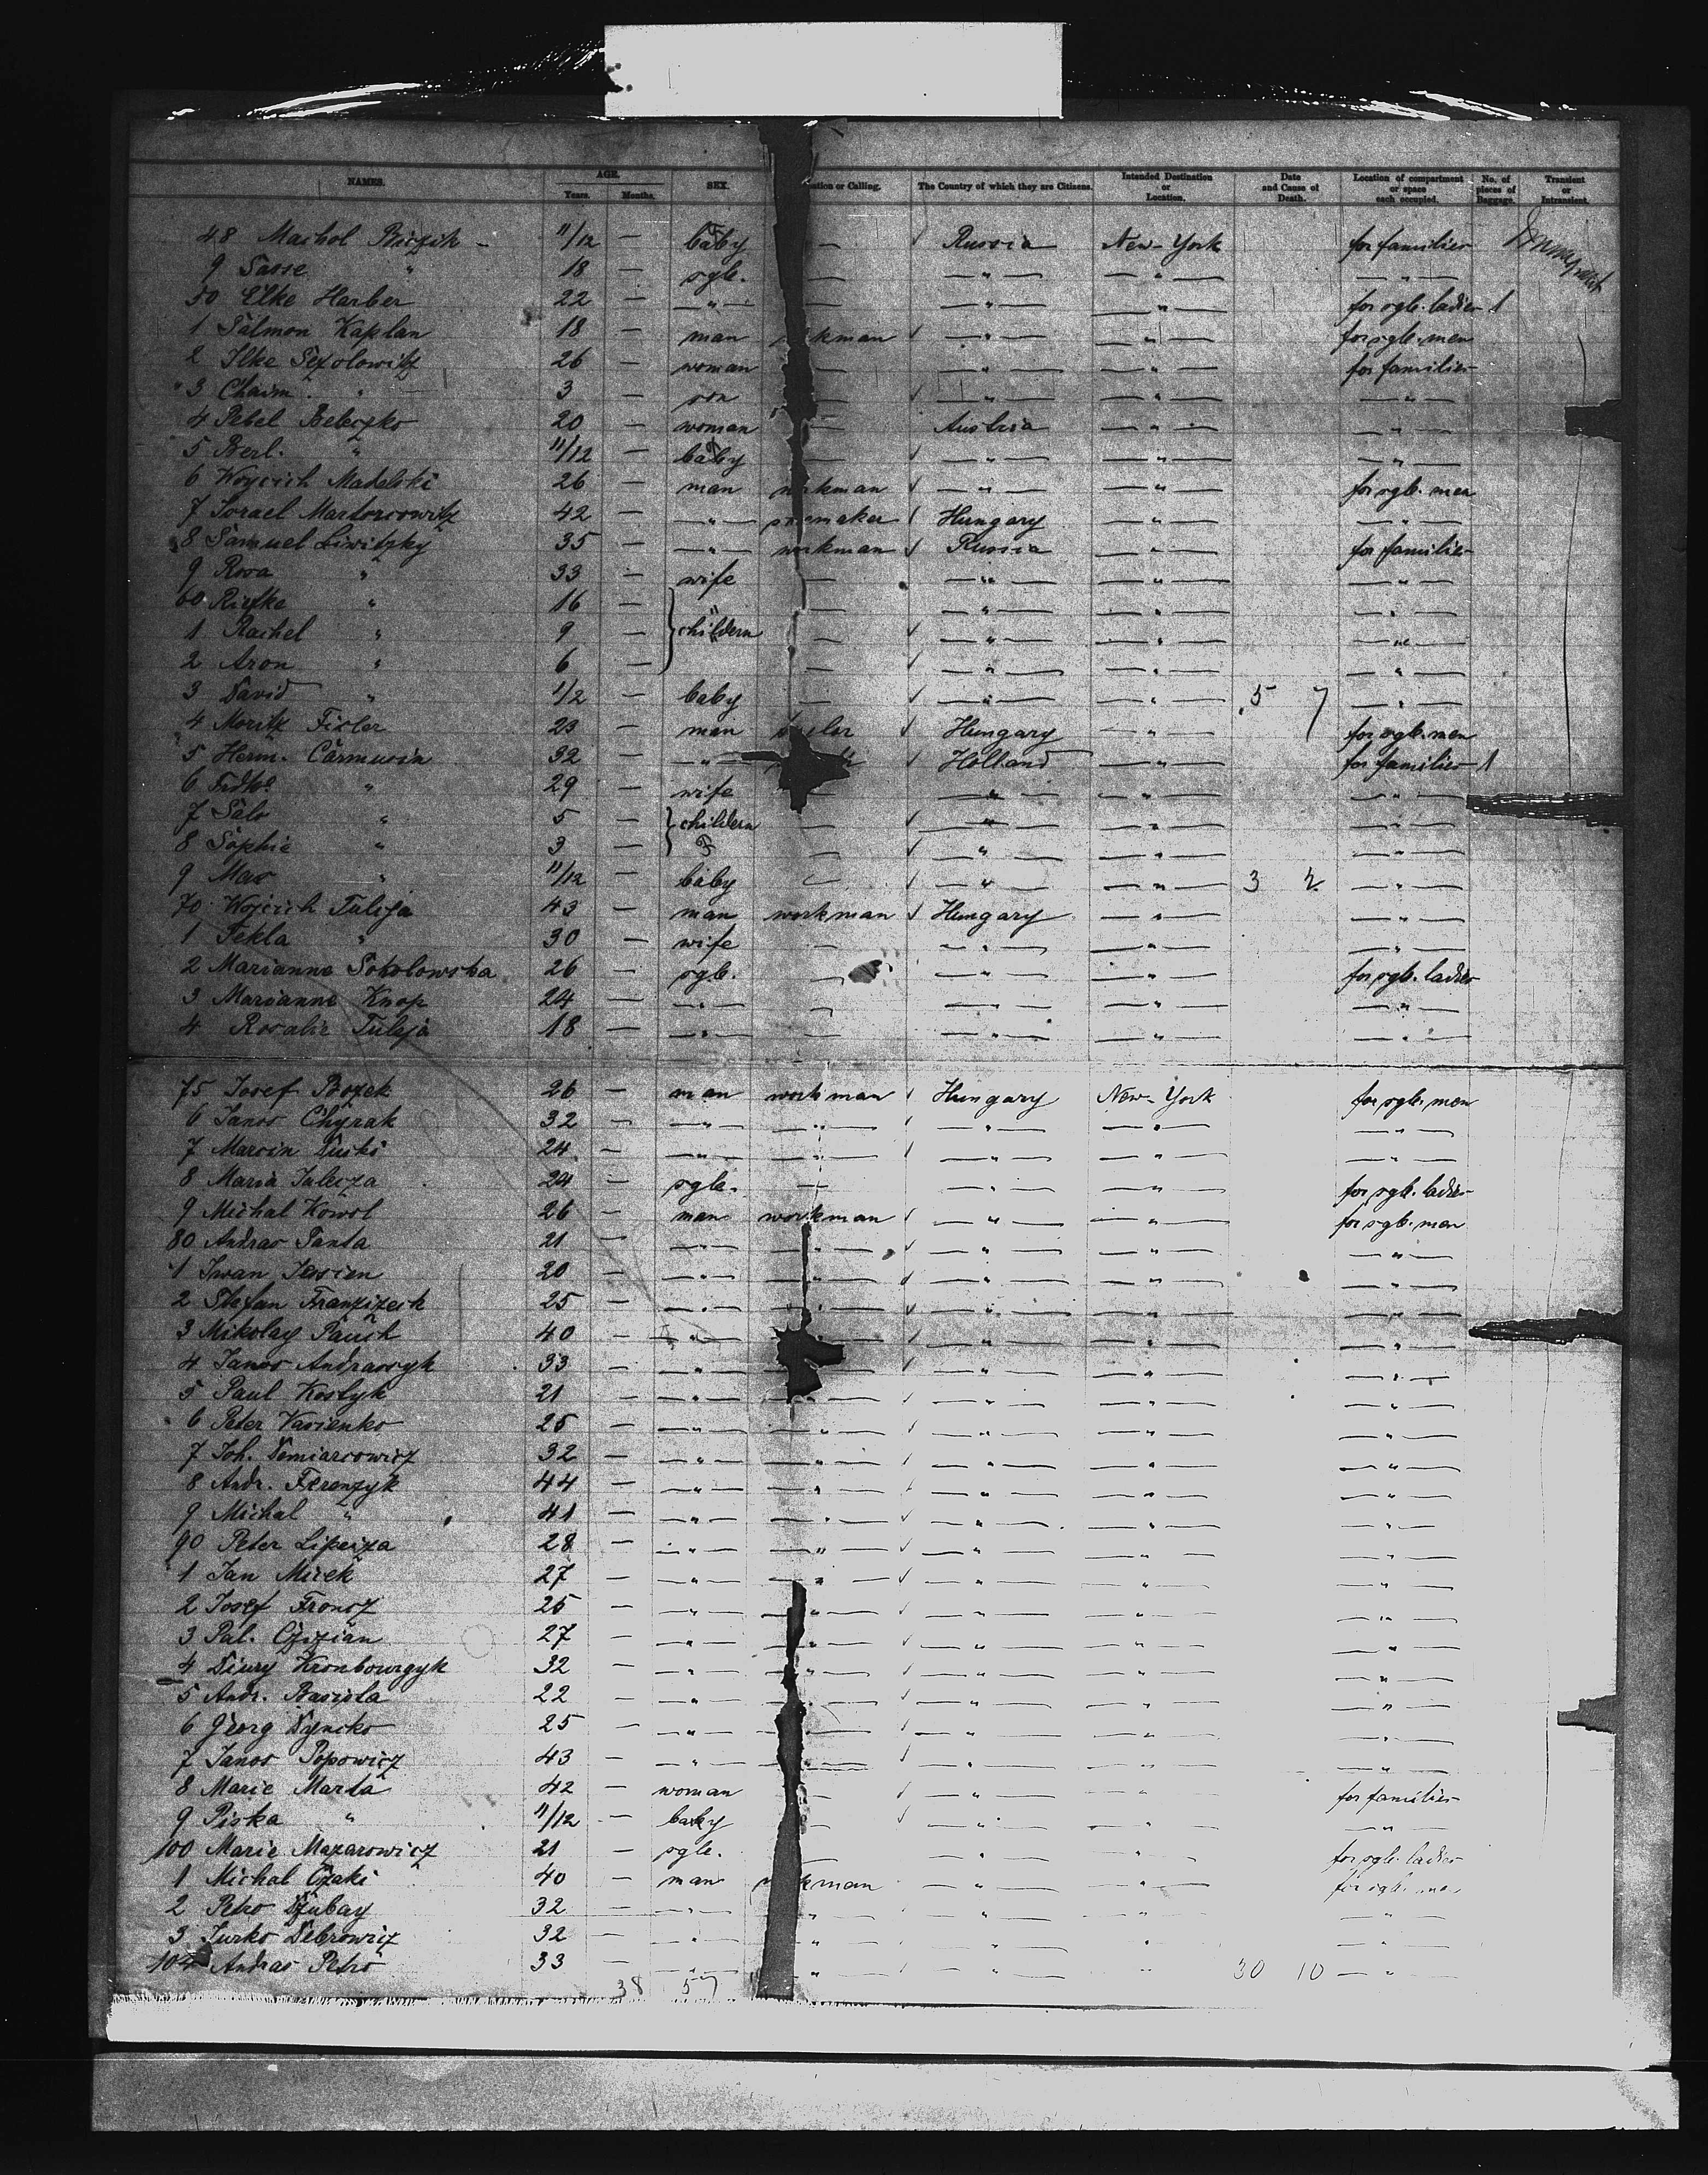 NAMES. AGE. Years. Months. SEX. ation or Calling. The Country of which they are Citizens. Intended Destination or Location. Date and Cause of Death. Location of compartment or space each occupied. No. of pieces of Baggage. Transient or Intransient.
48 Machol — 11/12 — baby — Russia New-York for families
9 Sosse " 18 — sgle. — — " — — " — — " —
50 Elke Harber 22 — — " — — — " — — " — for sgle. ladies 1
1 Salmon Kaplan 18 — man kman — " — — " — for sgle. men
2 26 — woman — — " — — " — for families
3 Chaim " 3 — son — — " — — " — — " —
4 Pebel Beleczko 20 — woman — Austria — " — — " —
5 Berl. " 11/12 — baby — — " — — " — — " —
6 Woycich Madelski 26 — man workman — " — — " — for sgle. men
7 Israel 42 — — " — maker Hungary — " — — " —
8 Samuel Liwitzky 35 — — " — workman Russia — " — for families
9 Rosa " 33 — wife — — " — — " — — " —
60 Riefke " 16 — — — " — — " — — " —
1 Rachel " 9 — childern — — " — — " — — " —
2 Aron " 6 — — — " — — " — — " —
3 David " 1/2 — baby — " — — " — 5 7 — " —
4 Moritz Fisler 23 — man Hungary — " — for sgle. men
5 Herm. Carmusin 32 — — " — Holland — " — for families 1
6 " 29 — wife — — " — — " — — " —
7 Salo " 5 — childern — — " — — " — — " —
8 Sophie " 3 — F — — " — — " — — " —
9 Max " 11/12 — baby — — " — — " — 3 2 — " —
70 Wojcich Tuleja 43 — man workman Hungary — " — — " —
1 Tekla " 30 — wife — — " — — " — — " —
2 Marianne Sokolowska 26 — sgle. — — " — — " — for sgle. ladies
3 Marianne Knap 24 — — " — — — " — — " — — " —
4 Rosalie Tuleja 18 — — " — — — " — — " — — " —
75 Josef Bozek 26 — man workman Hungary New-York for sgle. men
6 Janos Chyrak 32 — — " — — " — — " — — " — — " —
7 Marcin 24 — — " — — " — — " — — " — — " —
8 Maria 24 — sgle. — — " — — " — for sgle. ladies
9 Michal Kowol 26 — man workman — " — — " — for sgle. men
80 Andras Panta 21 — — " — — " — — " — — " — — " —
1 Iwan Jessien 20 — — " — — " — — " — — " — — " —
2 Stefan 25 — — " — — " — — " — — " — — " —
3 Mikolay Pauch 40 — — " — — " — — " — — " —
4 Janos Andrassyk 33 — — " — — " — — " — — " —
5 Paul Kostyk 21 — — " — — " — — " — — " — — " —
6 Peter Vasienko 25 — — " — — " — — " — — " — — " —
7 Joh. Demiarcowicz 32 — — " — — " — — " — — " — — " —
8 Andr. Ferenzyk 44 — — " — — " — — " — — " — — " —
9 Michal " 41 — — " — — " — — " — — " — — " —
90 Peter Lipeiza 28 — — " — — " — — " — — " — — " —
1 Jan Micek 27 — — " — — " — — " — — " — — " —
2 Josef Froncz 25 — — " — — " — — " — — " — — " —
3 Pal. 27 — — " — — " — — " — — " — — " —
4 32 — — " — — " — — " — — " — — " —
5 Andr. Basista 22 — — " — — " — — " — — " — — " —
6 Georg Dyncko 25 — — " — — " — — " — — " — — " —
7 Janos Popowicz 43 — — " — — " — — " — — " — — " —
8 Marie Marta 42 — woman — — " — — " — for families
9 Piska " 11/12 — baby — — " — — " — — " —
100 Marie Mazarowicz 21 — sgle. — — " — — " — for sgle. ladies
1 Michal Czaki 40 — man kman — " — — " — for sgle. men
2 Petro Dzubay 32 — — " — — " — — " — — " — — " —
3 Jurko Debrowicz 32 — — " — — " — — " — — " — — " —
104 Andras Petro 33 — — " — — " — — " — — " — 30 10 — " —
38 57